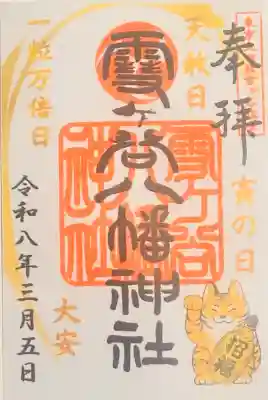 奉拝
寅の日
天赦日
雪ヶ谷八幡神社
大安
一粒万倍日
令和八年三月五日
雪ヶ谷
招福